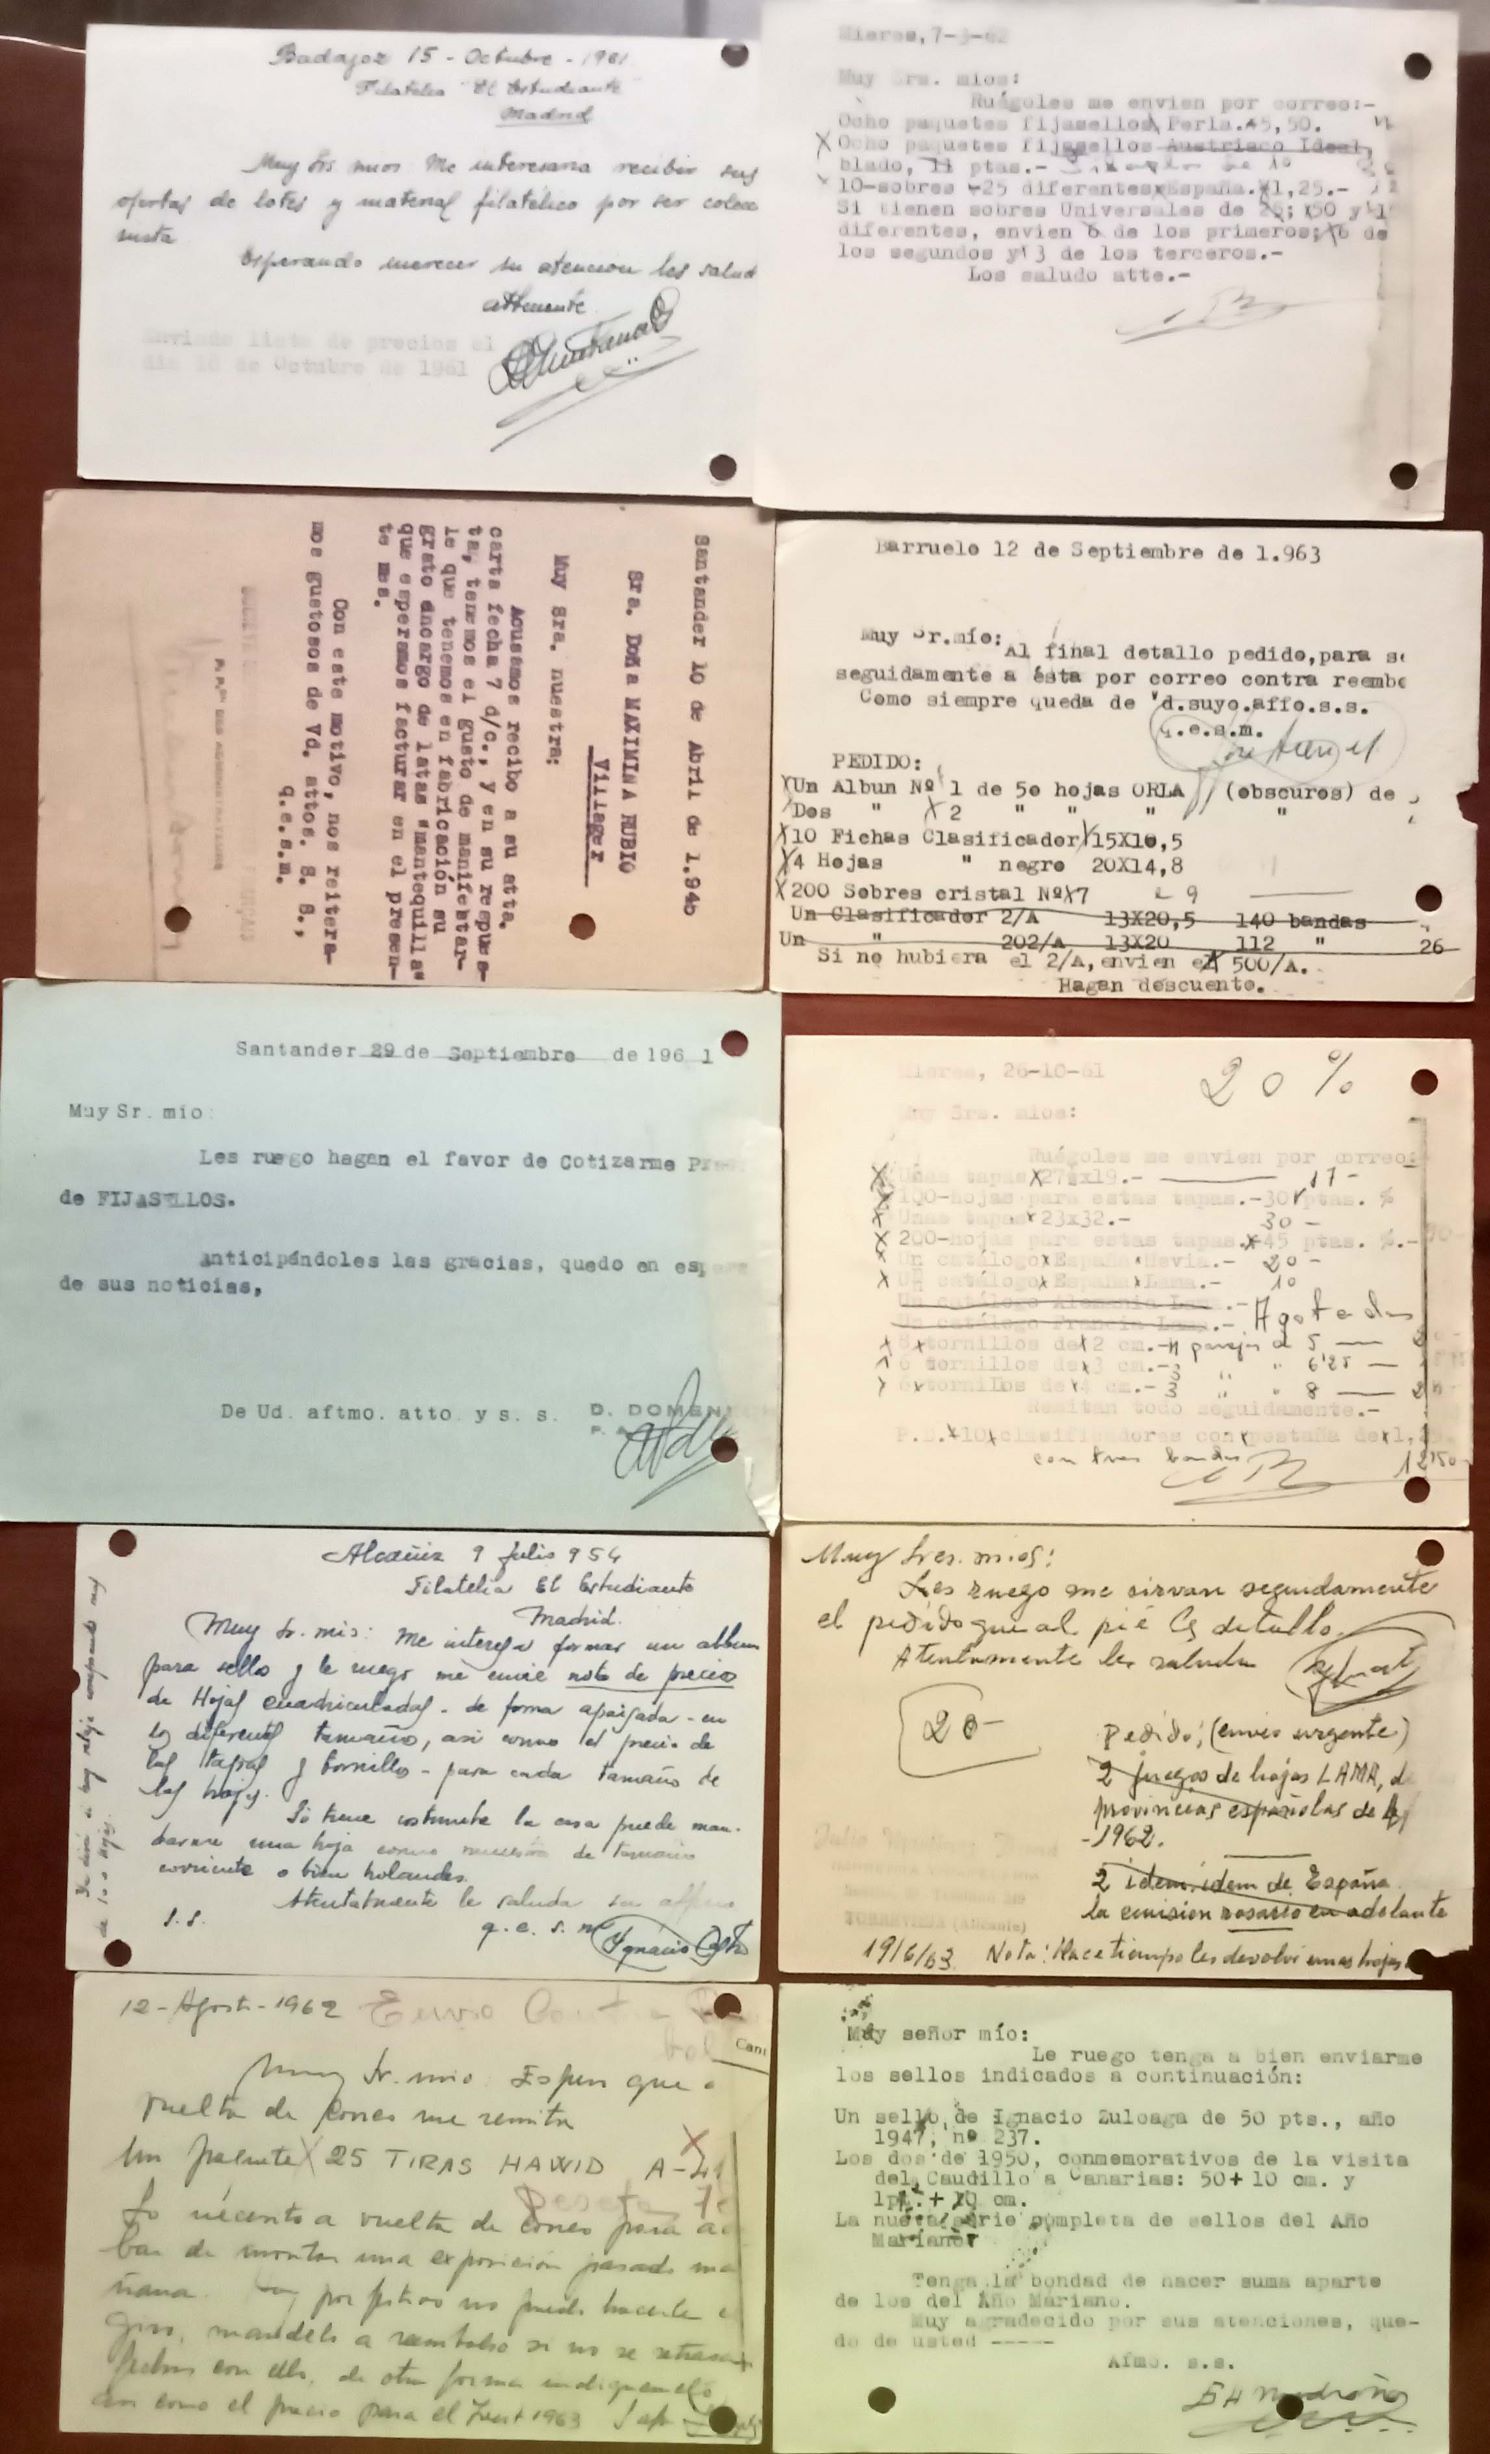 Badajoz 15 - Octubre - 1961
Filatelia "El Estudiante"
Madrid
Muy Srs mios Me interesaria recibir sus
ofertas de lotes y material filatélico por ser colecc
nista
Esperando merecer su atencion les salud
attmente
Enviada lista de precios el
dia 16 de Octubre de 1961
Mieres, 7-3-62
Muy Srs. mios:
Ruégoles me envien por correo:-
Ocho paquetes fijasellos Perla. 45,50.
Ocho paquetes fijasellos Austriaco Ideal,
blado, 11 ptas.-
10-sobres -25 diferentes España. 1,25.-
Si tienen sobres Universales de 25; 50 y 1
diferentes, envien 6 de los primeros; 6 de
los segundos y 3 de los terceros.-
Los saludo atte.-
Santander 10 de Abril de 1.946
Sra. Doña MAXIMINA RUBIO
Villager
Muy Sra. nuestra:
Acusamos recibo a su atta.
carta fecha 7 d/c., y en su respues-
ta, tenemos el gusto de manifestar-
le que tenemos en fabricación su
grato encargo de latas "mantequilla"
que esperamos facturar en el presen-
te mes.
Con este motivo, nos reitera-
mos gustosos de Vd. attos. S. S.,
q.e.s.m.
Barruelo 12 de Septiembre de 1.963
Muy Sr.mío:
Al final detallo pedido,para se
seguidamente a ésta por correo contra reembo
Como siempre queda de Vd.suyo.affo.s.s.
q.e.s.m.
PEDIDO:
Un Albun Nº 1 de 50 hojas ORLA (obscuros) de
Dos " 2 " " " "
10 Fichas Clasificador 15X10,5
4 Hojas " negro 20X14,8
200 Sobres cristal Nº 7 9
Un Clasificador 2/A 13X20,5 140 bandas
Un " 202/A 13X20 112 " 26
Si no hubiera el 2/A,envien el 500/A.
Hagan descuento.
Santander 29 de Septiembre de 196 1
Muy Sr. mio:
Les ruego hagan el favor de Cotizarme
de FIJASELLOS.
Anticipándoles las gracias, quedo en espera
de sus noticias,
De Ud. aftmo. atto. y s. s. D. DOMEN
Mieres, 26-10-61
20 %
Muy Srs. mios:
Ruégoles me envien por correo:
Unas tapas 27x19.- 17-
100-hojas para estas tapas.-30 ptas. %
Unas tapas 23x32.- 30-
200-hojas para estas tapas. 45 ptas. %.-
Un catálogo España Hevia.- 20-
Un catálogo España Lama.- 10
Un catálogo Alemania Lama.-
Un catálogo Francia Lama.- Agotados
8 tornillos de 2 cm.-4 parejas a 5
6 tornillos de 3 cm.-3 " " 6'25
6 tornillos de 4 cm.-3 " " 8
Remitan todo seguidamente.-
P.D. 10 clasificadores con pestaña de 1,
con tres bandas 12'50
Alcañiz 9 Julio 954
Filatelia El Estudiante
Madrid.
Muy Sr. mio: Me interesa formar un album
para sellos y le ruego me envie nota de precio
de Hojas cuadriculadas - de forma apaisada - en
los diferentes tamaños, asi como el precio de
las tapas y tornillos - para cada tamaño de
las hojas.
Si tiene costumbre la casa puede man-
darme una hoja como muestra de tamaño
corriente o bien holandes.
Atentamente le saluda su affmo
s.s. q. e. s. m.
Ignacio
de 100 hojas.
Muy Sres. mios:
Les ruego me sirvan seguidamente
el pedido que al pié les detallo.
Atentamente les saluda
20-
Pedido: (envio urgente)
2 juegos de hojas LAMA, de
provincias españolas de
-1962.
2 idem. idem de España
la emision rosario en adelante
TORREVIEJA (Alicante)
19/6/63 Nota: Hace tiempo les devolví unas hojas
12-Agosto-1962
Cant
Muy Sr. mio: Espero que a
vuelta de correo me remita
Un paquete 25 TIRAS HAWID A-41
Peseta
Lo necesito a vuelta de correo para aca
bar de montar una exposición pasado ma
ñana. Hoy por festivo no puedo hacerle el
giro, mandelo a reembolso si no se retrasa
fechas con ello, de otra forma indiquemelo
asi como el precio para el 1963
Muy señor mío:
Le ruego tenga a bien enviarme
los sellos indicados a continuación:
Un sello de Ignacio Zuloaga de 50 pts., año
1947, nº 237.
Los dos de 1950, conmemorativos de la visita
del Caudillo a Canarias: 50+ 10 cm. y
1pt.+ 10 cm.
La nueva serie completa de sellos del Año
Mariano.
Tenga la bondad de hacer suma aparte
de los del Año Mariano.
Muy agradecido por sus atenciones, que-
do de usted -----
Afmo. s.s.